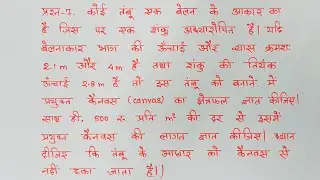 प्रश्न-7. कोई तंबू एक बेलन के आकार का
है जिस पर एक शंकु अध्यारोपित है। यदि
बेलनाकार भाग की ऊँचाई और व्यास क्रमशः
2.1 m और 4 m है तथा शंकु की तिर्यक
ऊँचाई 2.8 m है तो इस तंबू को बनाने में
प्रयुक्त कैनवस (canvas) का क्षेत्रफल ज्ञात कीजिए।
साथ ही, 500 रु प्रति m² की दर से इसमें
प्रयुक्त कैनवस की लागत ज्ञात कीजिए। ध्यान
दीजिए कि तंबू के आधार को कैनवस से
नहीं ढका जाता है।